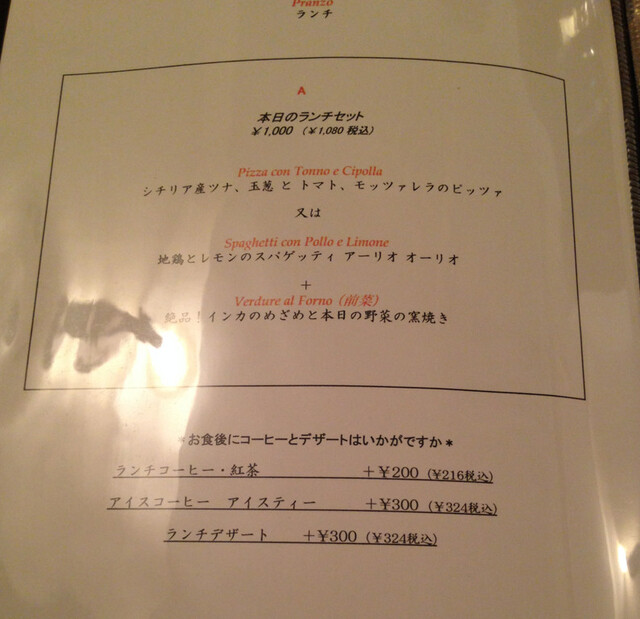 Pranzo
ランチ
A
本日のランチセット
￥1,000 （￥1,080 税込）
Pizza con Tonno e Cipolla
シチリア産ツナ、玉葱 と トマト、モッツァレラのピッツァ
又は
Spaghetti con Pollo e Limone
地鶏とレモンのスパゲッティ アーリオ オーリオ
+
Verdure al Forno（前菜）
絶品！インカのめざめと本日の野菜の窯焼き
*お食後にコーヒーとデザートはいかがですか*
ランチコーヒー・紅茶 +￥200（￥216税込）
アイスコーヒー アイスティー +￥300（￥324税込）
ランチデザート +￥300（￥324税込）